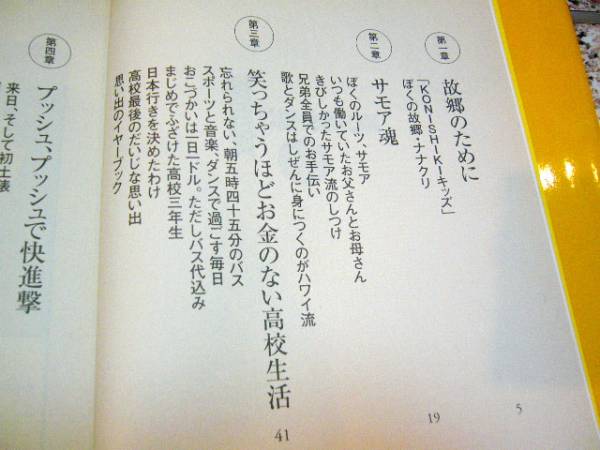 第一章
故郷のために
5
「KONISHIKIキッズ」
ぼくの故郷・ナナクリ
第二章
サモア魂
19
ぼくのルーツ、サモア
いつも働いていたお父さんとお母さん
きびしかったサモア流のしつけ
兄弟全員でのお手伝い
歌とダンスはしぜんに身につくのがハワイ流
第三章
笑っちゃうほどお金のない高校生活
41
忘れられない、朝五時四十五分のバス
スポーツと音楽、ダンスで過ごす毎日
おこづかいは一日一ドル。ただしバス代込み
まじめでふざけた高校三年生
日本行きを決めたわけ
高校最後のだいじな思い出
思い出のイヤーブック
第四章
プッシュ、プッシュで快進撃
来日、そして初土俵